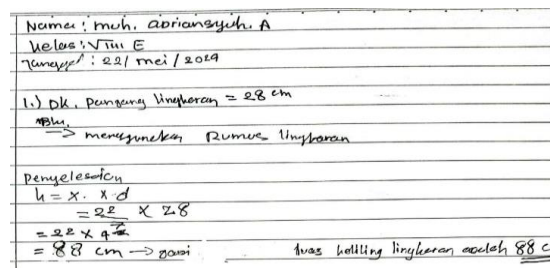 Nama : muh. abriansyah. A
Kelas : VIII E
Tanggal : 22/ mei / 2024
1.) Dk. Panjang lingkaran = 28 cm
→ menggunakan Rumus lingkaran
Penyelesaian
k = x . x d
= 22 x 28
= 22 x 4
= 88 cm →
luas keliling lingkaran adalah 88 c